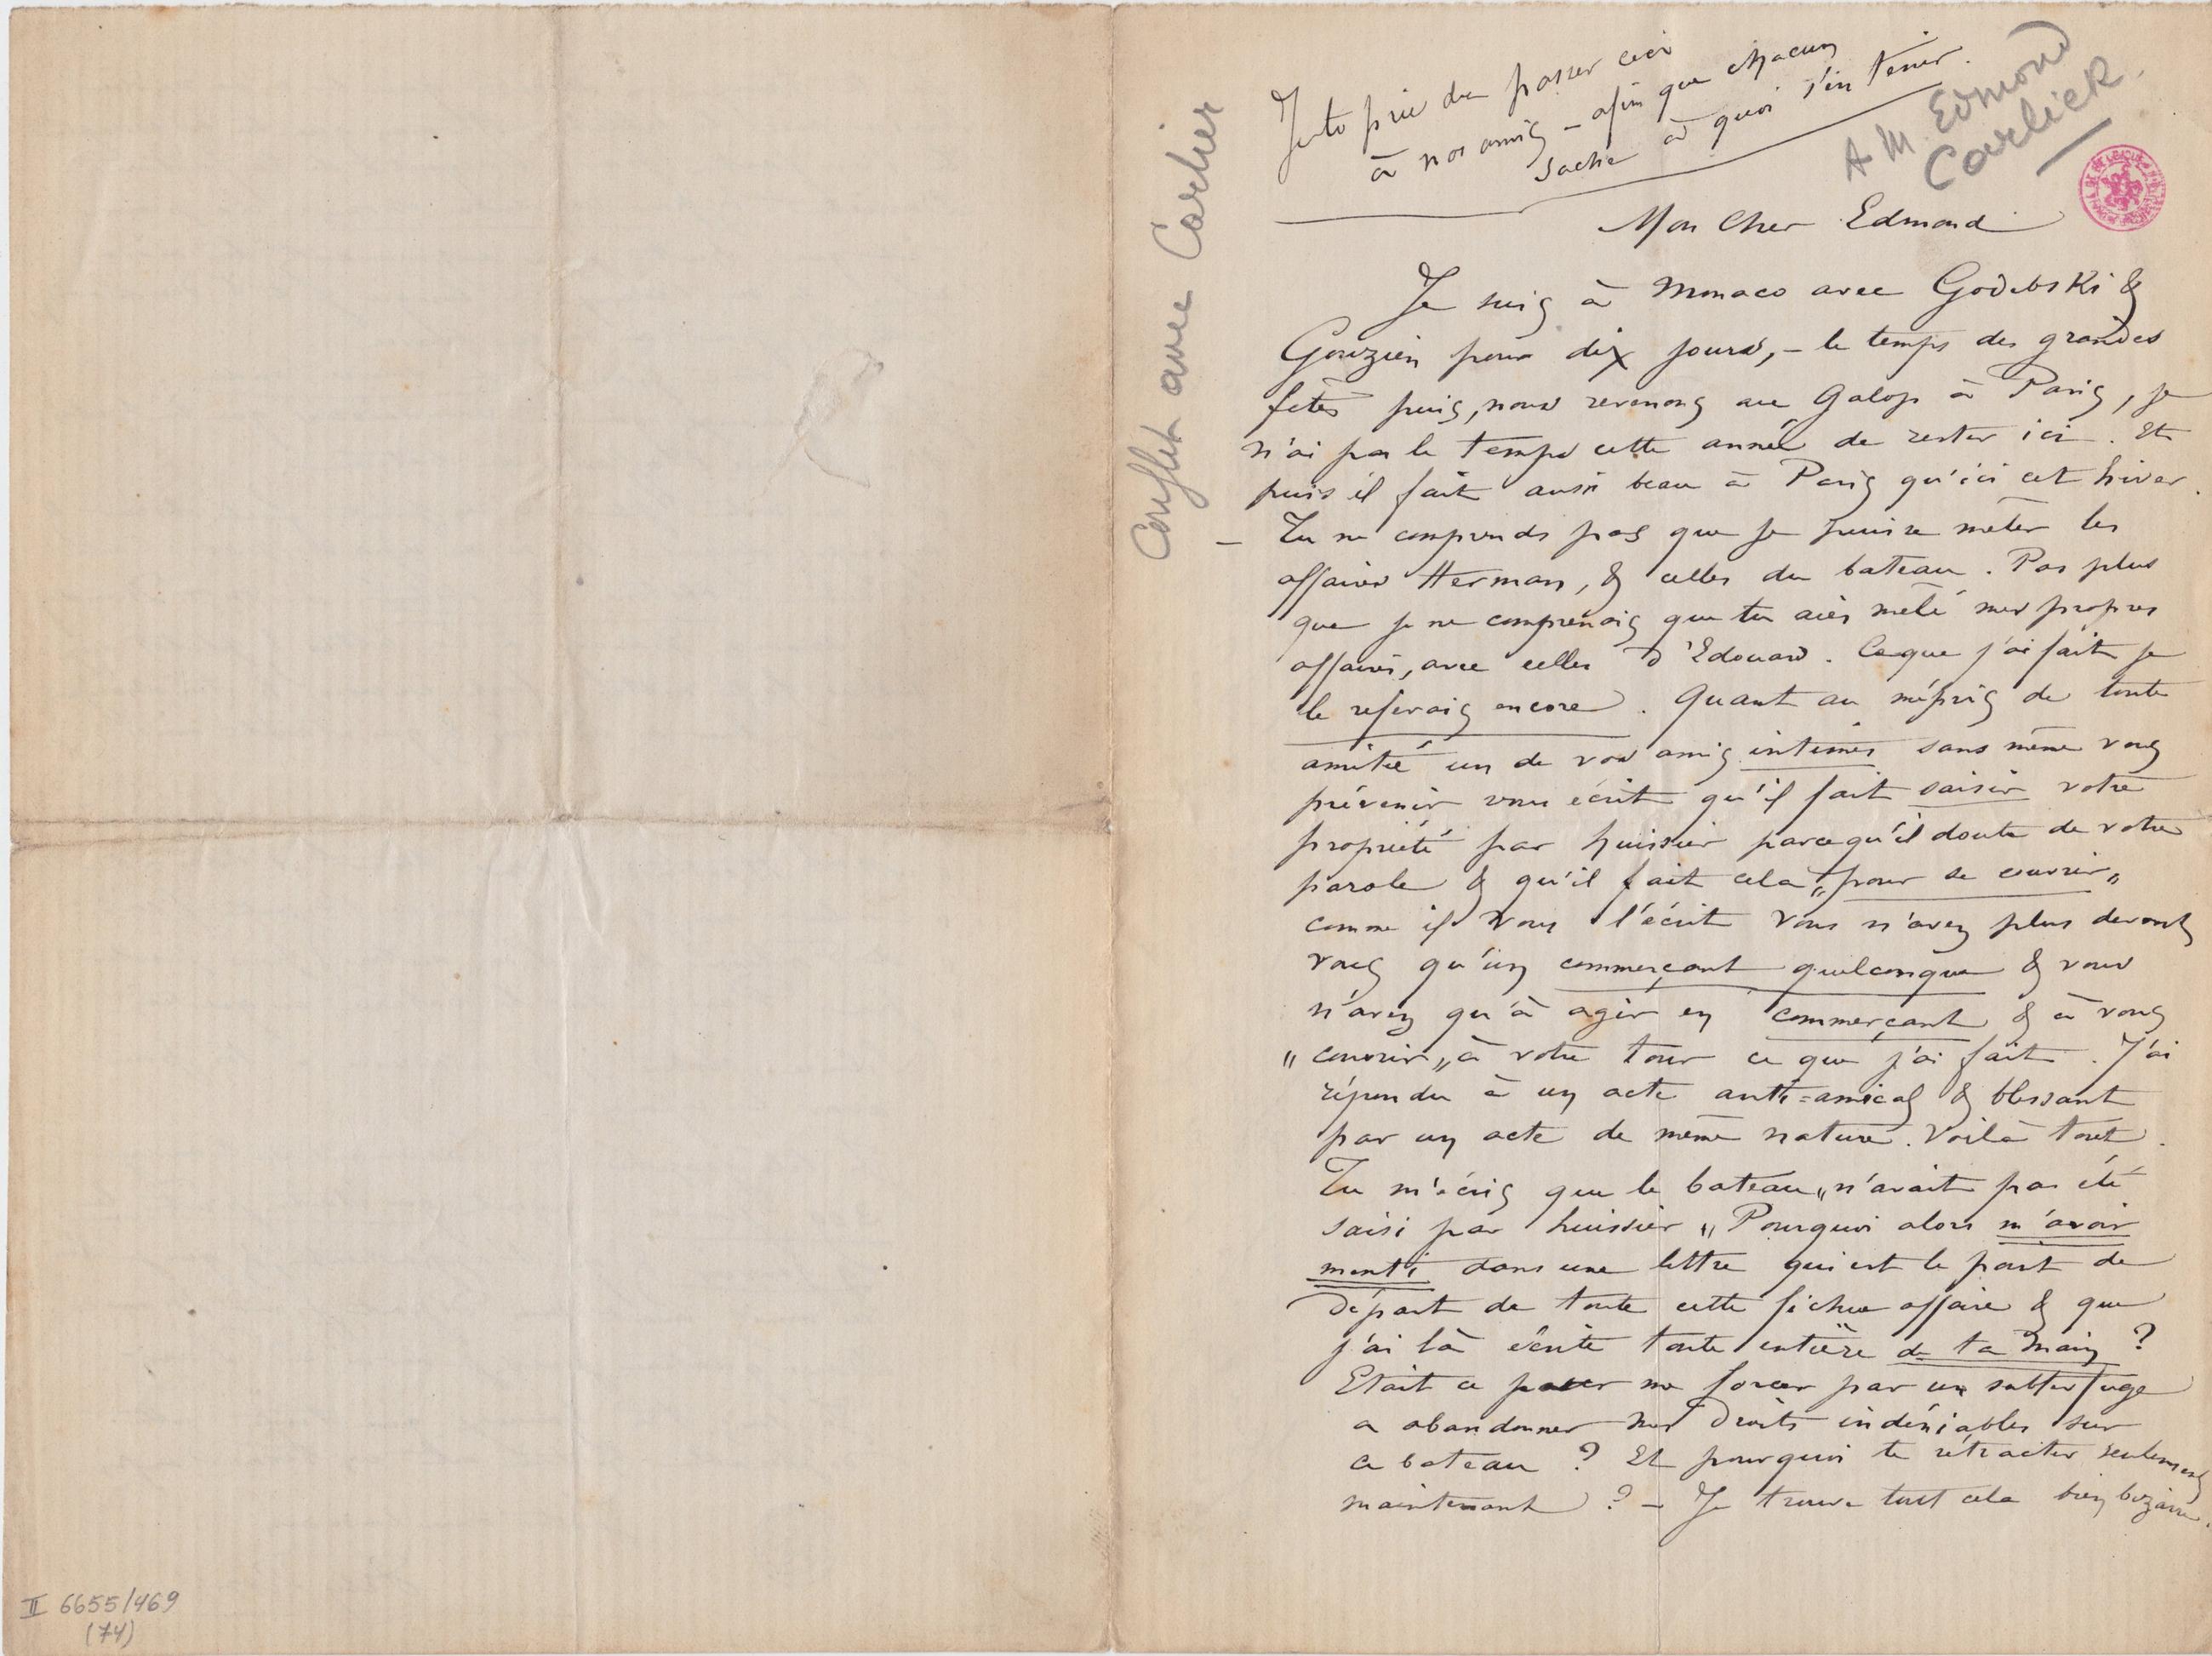 Je te prie de passer ceci
à nos amis – afin que chacun
sache à quoi s'en tenir.
A M. Edmond
Carlier
Conflit avec Carlier
Mon Cher Edmond
Je suis à Monaco avec Godebski &
Gouzien pour dix jours, – le temps des grandes
fêtes puis, nous revenons au Galop à Paris, je
n'ai pas le temps cette année de rester ici. Et
puis il fait aussi beau à Paris qu'ici cet hiver.
– Tu ne comprends pas que je puisse mêler les
affaires Herman, & celles du bateau. Pas plus
que je ne comprenais que tu aies mêlé mes propres
affaires, avec celles d'Edouard. Ce que j'ai fait je
le referais encore. Quant au mépris de toute
amitié un de vos amis intimes sans même vous
prévenir vous écrit qu'il fait saisir votre
propriété par huissier parcequ'il doute de votre
parole & qu'il fait cela „pour se couvrir„
comme il vous l'écrit vous n'avez plus devant
vous qu'un commerçant quelconque & vous
n'avez qu'à agir en commerçant & à vous
„couvrir„ à votre tour ce que j'ai fait. J'ai
répondu à un acte anti=amical & blessant
par un acte de même nature. Voilà tout.
Tu m'écris que le bateau „n'avait pas été
saisi par huissier„ Pourquoi alors m'avoir
menti dans une lettre qui est le point de
départ de toute cette fichue affaire & que
j'ai là écrite toute entière de ta main ?
Etait ce pour me forcer par un subterfuge
a abandonner mes droits indéniables sur
ce bateau ? Et pourquoi te rétracter seulement
maintenant ? – Je trouve tout cela bien bizarre.
II 6655/469
(74)